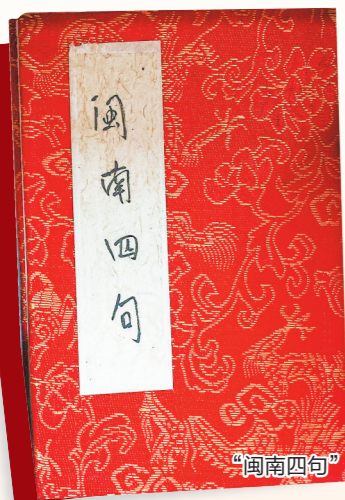 闽南四句
“闽南四句”